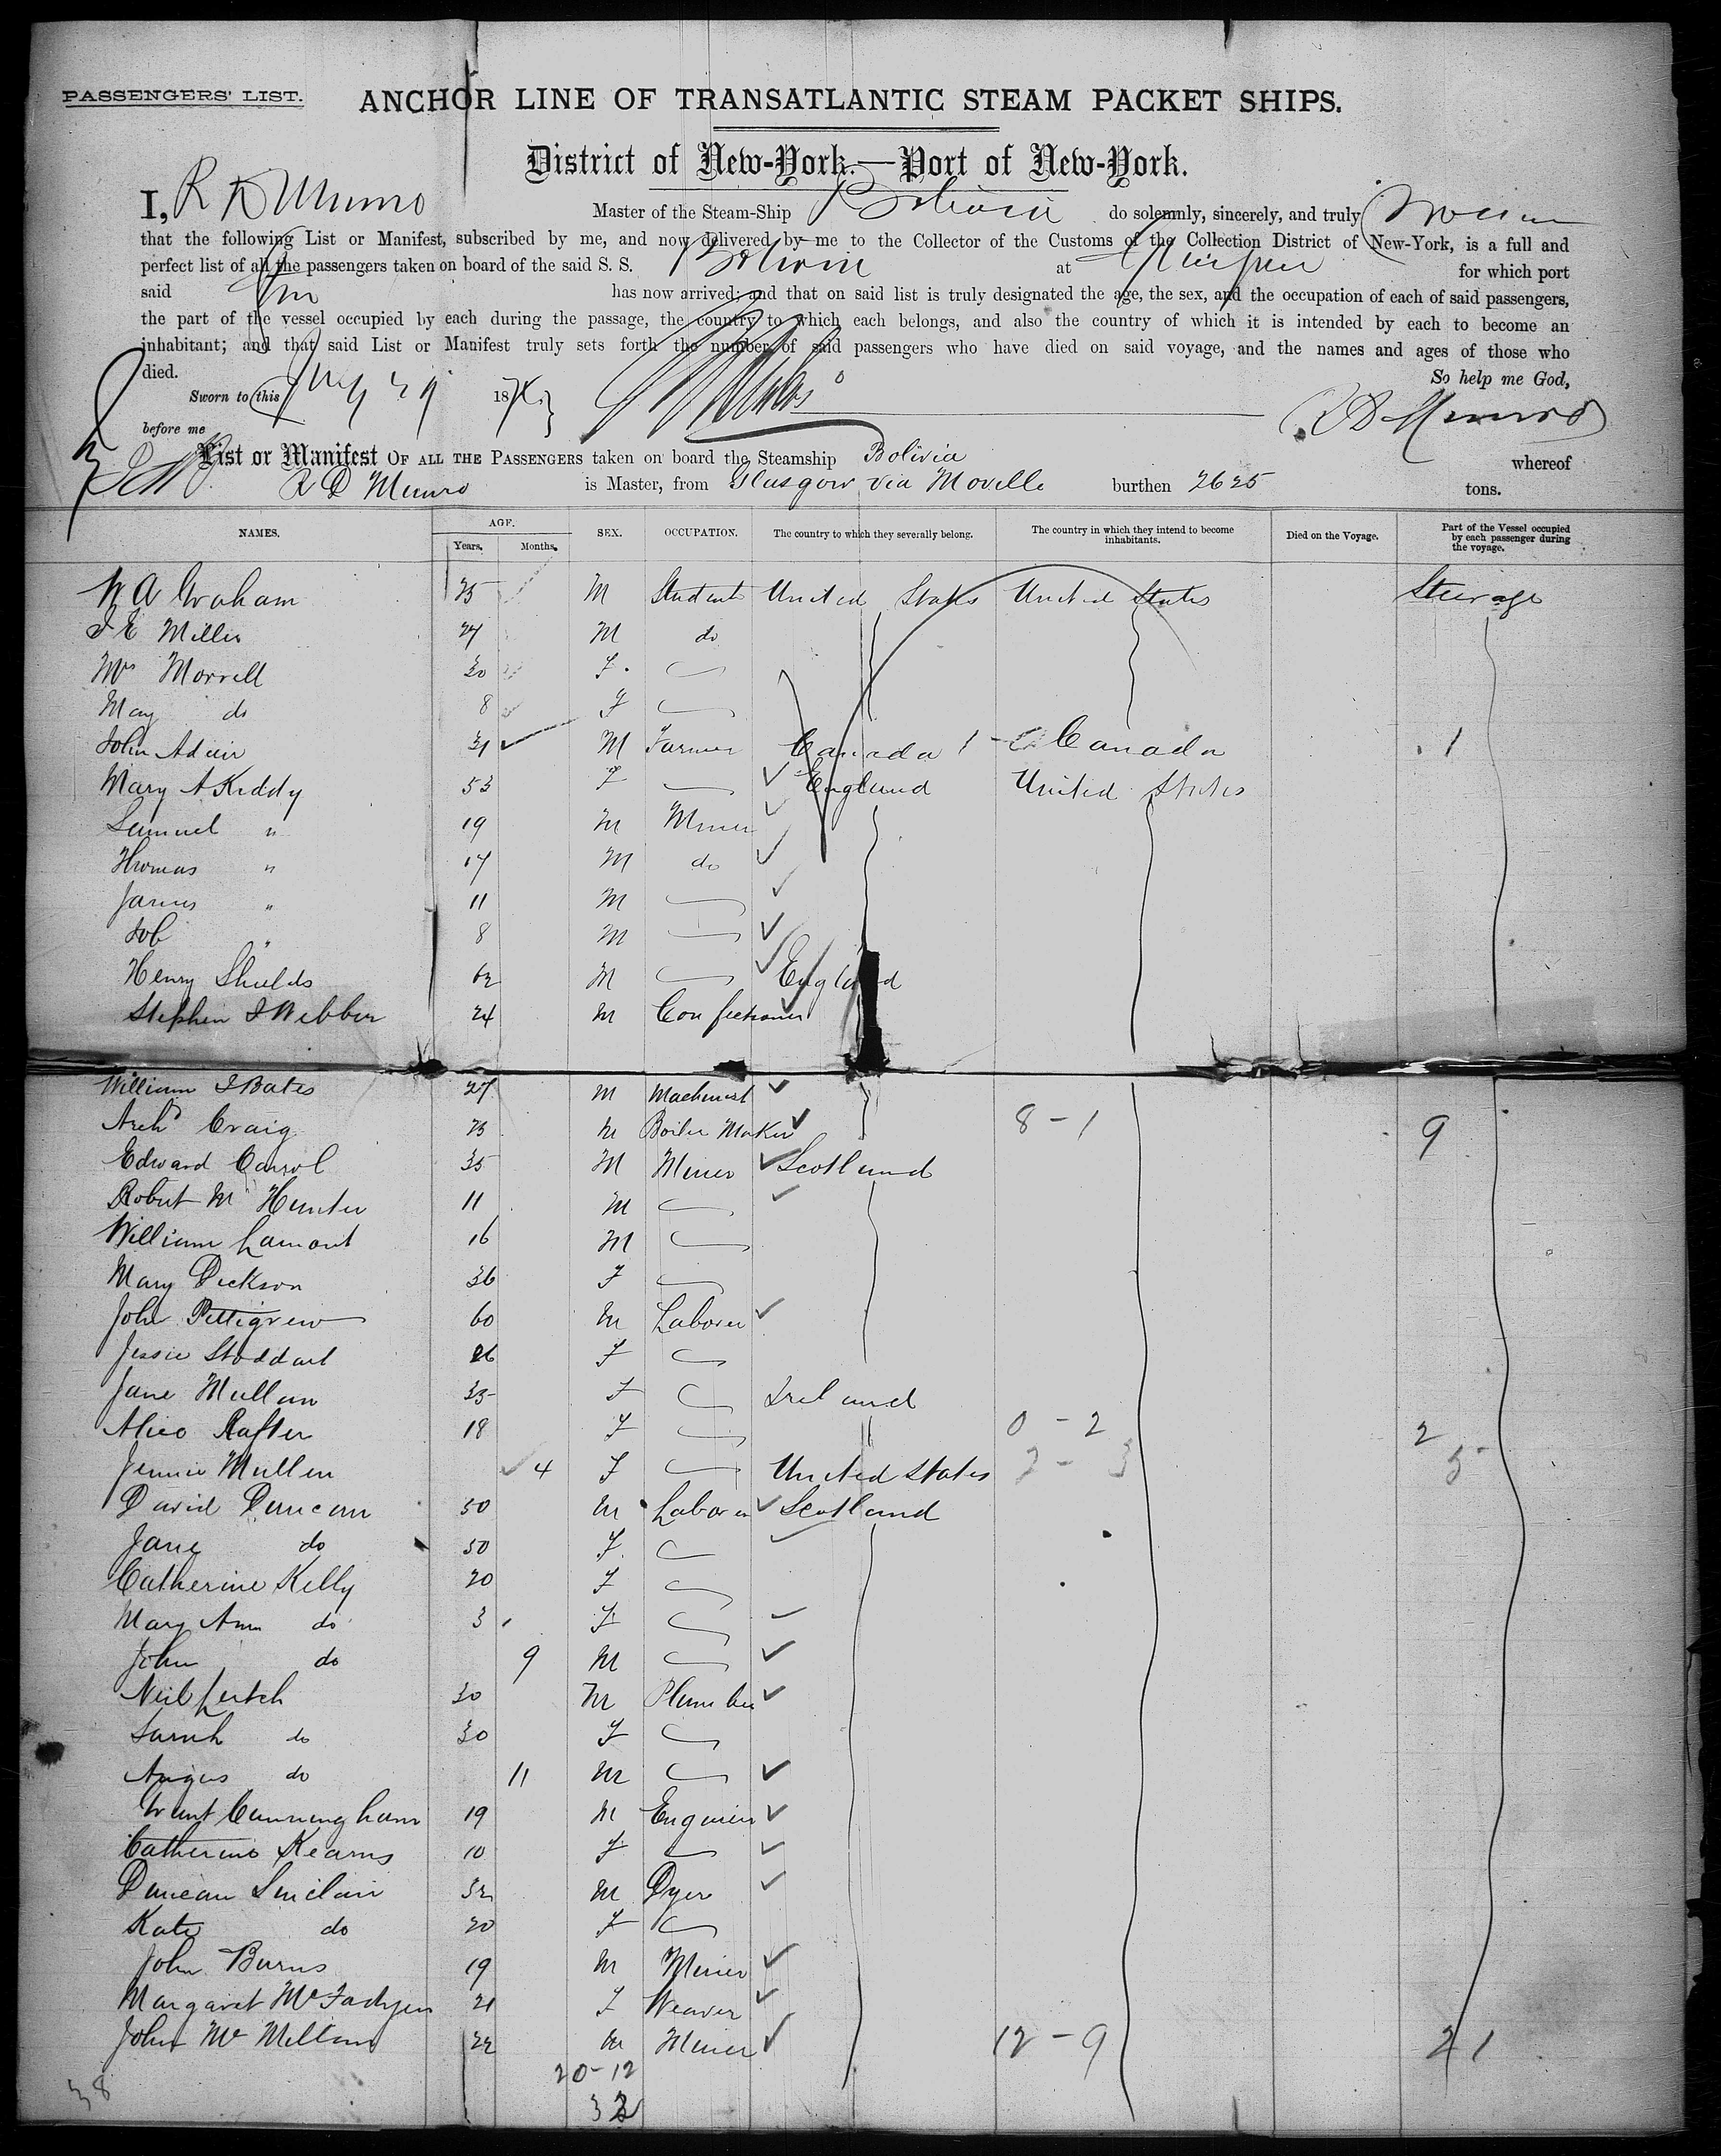 PASSENGERS' LIST.
ANCHOR LINE OF TRANSATLANTIC STEAM PACKET SHIPS.
District of New-York.—Port of New-York.
I, R D Munro Master of the Steam-Ship Bolivia do solemnly, sincerely, and truly swear
that the following List or Manifest, subscribed by me, and now delivered by me to the Collector of the Customs of the Collection District of New-York, is a full and
perfect list of all the passengers taken on board of the said S. S. Bolivia at Glasgow for which port
said has now arrived; and that on said list is truly designated the age, the sex, and the occupation of each of said passengers,
the part of the vessel occupied by each during the passage, the country to which each belongs, and also the country of which it is intended by each to become an
inhabitant; and that said List or Manifest truly sets forth the number of said passengers who have died on said voyage, and the names and ages of those who
died. So help me God,
Sworn to this 29 187
before me R D Munro
List or Manifest OF ALL THE PASSENGERS taken on board the Steamship Bolivia whereof
R D Munro is Master, from Glasgow via Moville burthen 2625 tons.
NAMES. AGE. Years. Months. SEX. OCCUPATION. The country to which they severally belong. The country in which they intend to become inhabitants. Died on the Voyage. Part of the Vessel occupied by each passenger during the voyage.
W A Graham 25 M Student United States United States Steerage
J E Miller 27 M do
Mrs Morrell 30 F
May do 8 F
John Adair 31 M Farmer Canada 1 Canada 1
Mary A Kiddy 53 F England United States
Samuel " 19 M Miner
Thomas " 17 M do
James " 11 M
Job " 8 M
Henry Shields 62 M England
Stephen J Webber 24 M Confectioner
William J Bates 27 M Machinist
Archd Craig 23 M Boiler Maker 8 - 1 9
Edward Carrol 35 M Miner Scotland
Robert Mc Hunter 11 M
William Lamont 16 M
Mary Dickson 36 F
John Pettigrew 60 M Laborer
Jessie Stoddart 26 F
Jane Mullan 35 F Ireland
Alice Rafter 18 F 0 - 2 2
Jennie Mullen 4 F United States 2 - 3 5
David Duncan 50 M Laborer Scotland
Jane do 50 F
Catherine Kelly 20 F
Mary Ann do 3 F
John do 9 M
Neil Leitch 30 M Plumber
Sarah do 30 F
Angus do 11 M
Cunningham 19 M Engineer
Catherine Kearns 10 F
Duncan Sinclair 32 M Dyer
Kate do 20 F
John Burns 19 M Miner
Margaret McFadyen 21 F Weaver
John McMillan 22 M Miner 12 - 9 21
20-12
38 32